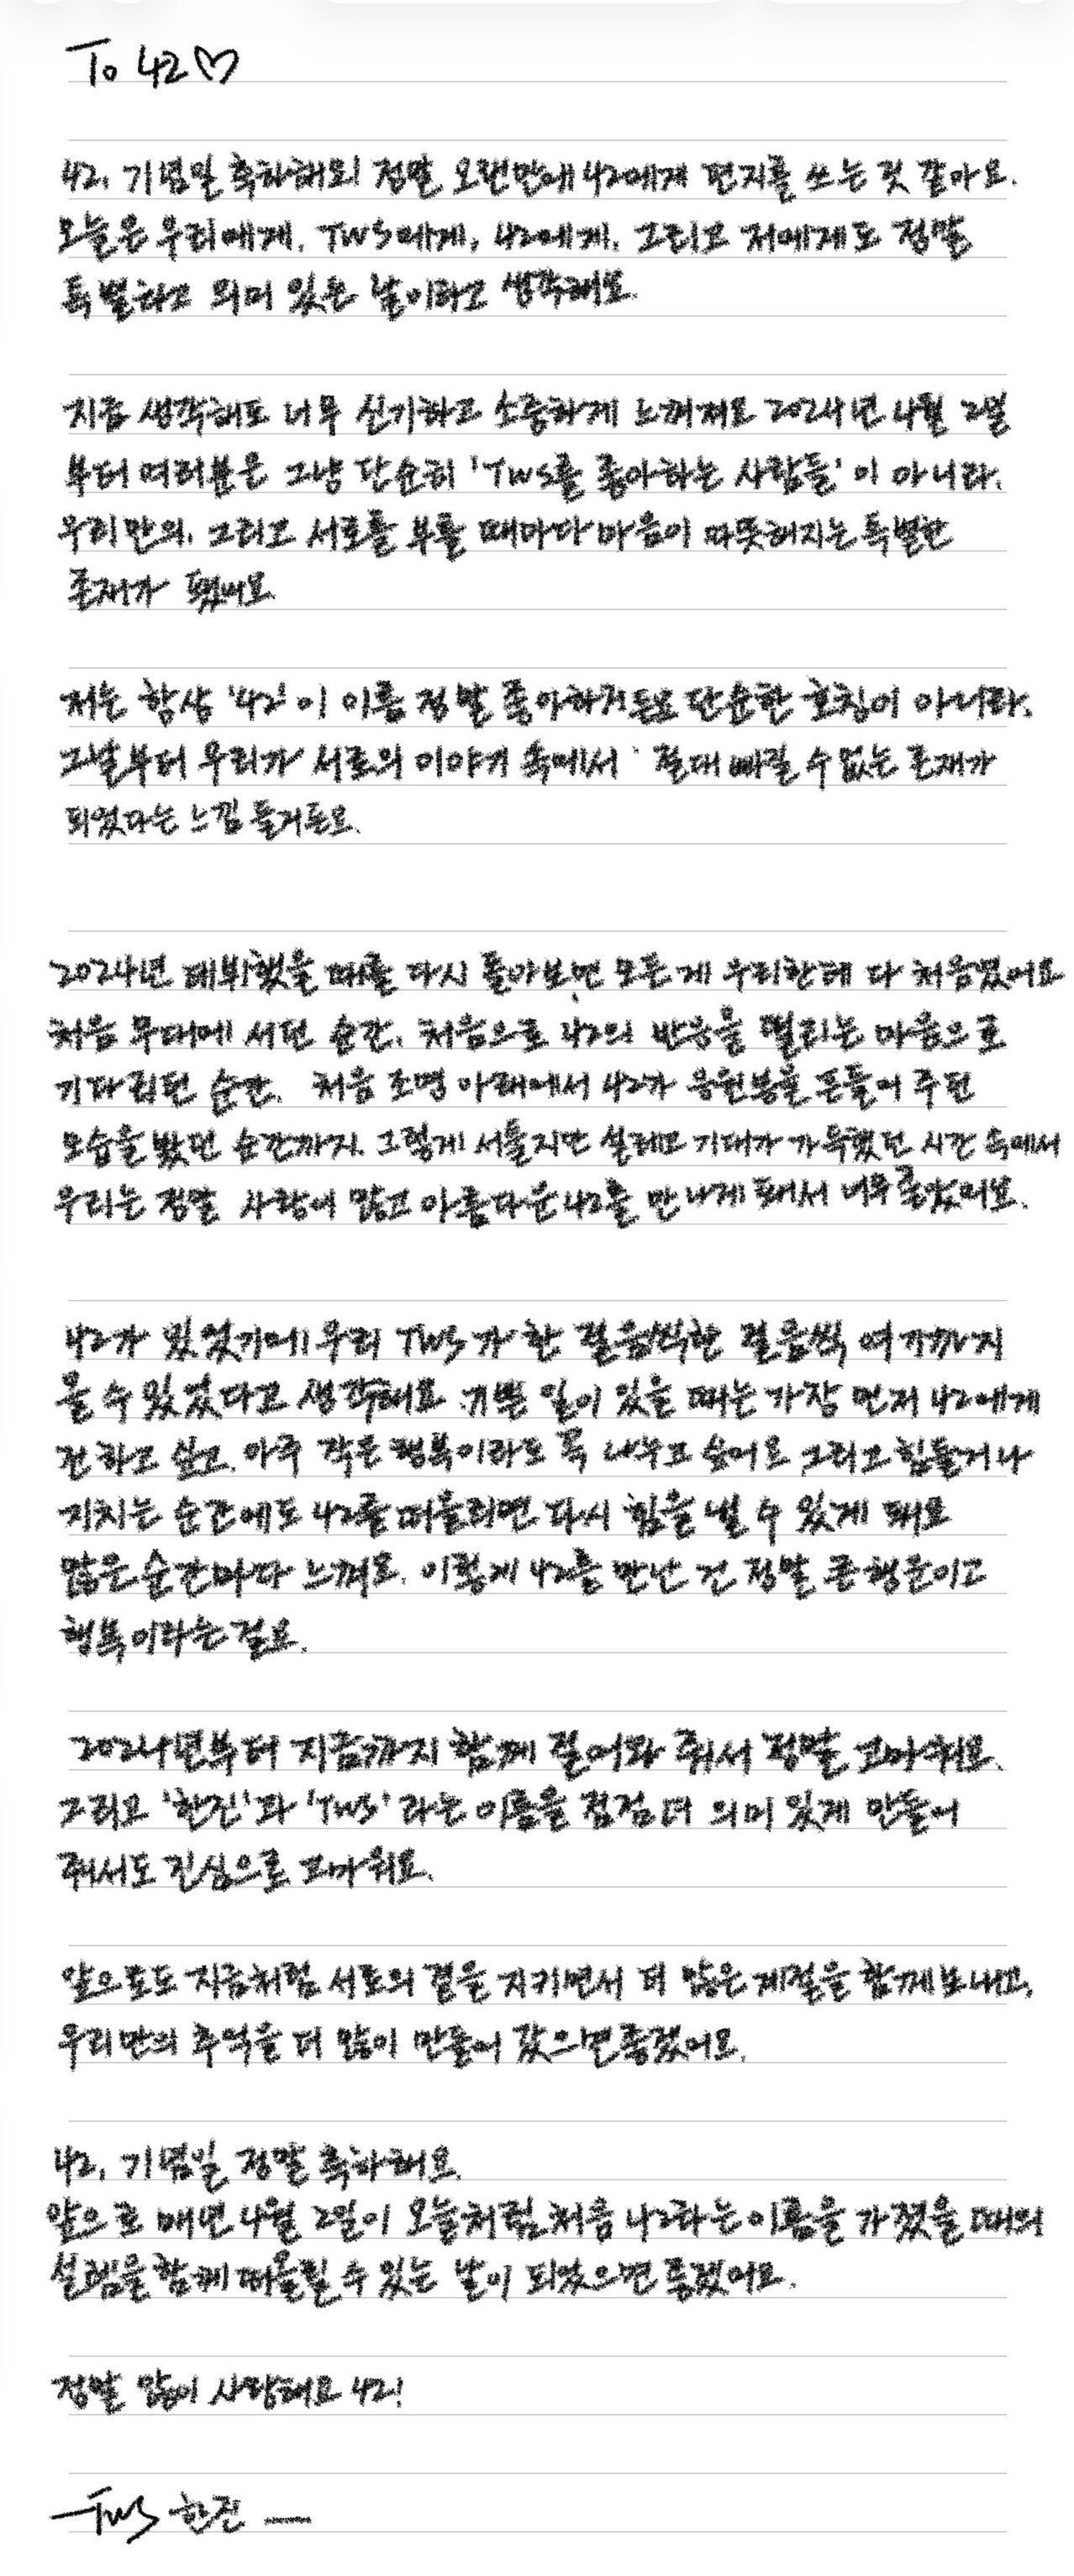 To 42♡
42, 기념일 축하해요! 정말 오랜만에 42에게 편지를 쓰는 것 같아요.
오늘은 우리에게, TWS에게, 42에게, 그리고 저에게도 정말
특별하고 의미 있은 날이라고 생각해요.
지금 생각해도 너무 신기하고 소중하게 느껴져요 2024년 4월 2일
부터 여러분은 그냥 단순히 'TWS를 좋아하는 사람들'이 아니라,
우리만의, 그리고 서로를 부를 때마다 마음이 따뜻해지는 특별한
존재가 됐어요.
저는 항상 '42' 이 이름 정말 좋아하거든요 단순한 호칭이 아니라,
그날부터 우리가 서로의 이야기 속에서 절대 빠질 수 없는 존재가
되었다는 느낌 들거든요.
2024년 데뷔했을 때를 다시 돌아보면 모든 게 우리한테 다 처음였어요
처음 무대에 서던 순간, 처음으로 42의 반응을 떨리는 마음으로
기다리던 순간, 처음 조명 아래에서 42가 응원봉을 흔들어 주던
모습을 봤던 순간까지. 그렇게 서툴지만 설레고 기대가 가득했던 시간 속에서
우리는 정말 사랑이 많고 아름다운 42를 만나게 돼서 너무 좋았어요.
42가 있었기에 우리 TWS가 한 걸음씩 한 걸음씩 여기까지
올 수 있었다고 생각해요 기쁜 일이 있을 때는 가장 먼저 42에게
전하고 싶고, 아주 작은 행복이라도 꼭 나누고 싶어요 그리고 힘들거나
지치는 순간에도 42를 떠올리면 다시 힘을 낼 수 있게 돼요
많은 순간마다 느껴요. 이렇게 42를 만난 건 정말 큰 행운이고
행복이라는 걸요.
2024년부터 지금까지 함께 걸어와 줘서 정말 고마워요.
그리고 '한진'과 'TWS'라는 이름을 점점 더 의미 있게 만들어
줘서도 진심으로 고마워요.
앞으로도 지금처럼 서로의 곁을 지키면서 더 많은 계절을 함께 보내고,
우리만의 추억을 더 많이 만들어 갔으면 좋겠어요.
42, 기념일 정말 축하해요.
앞으로 매년 4월 2일이 오늘처럼 처음 42라는 이름을 가졌을 때의
설렘을 함께 떠올릴 수 있는 날이 되었으면 좋겠어요.
정말 많이 사랑해요 42!
—TWS 한진 —